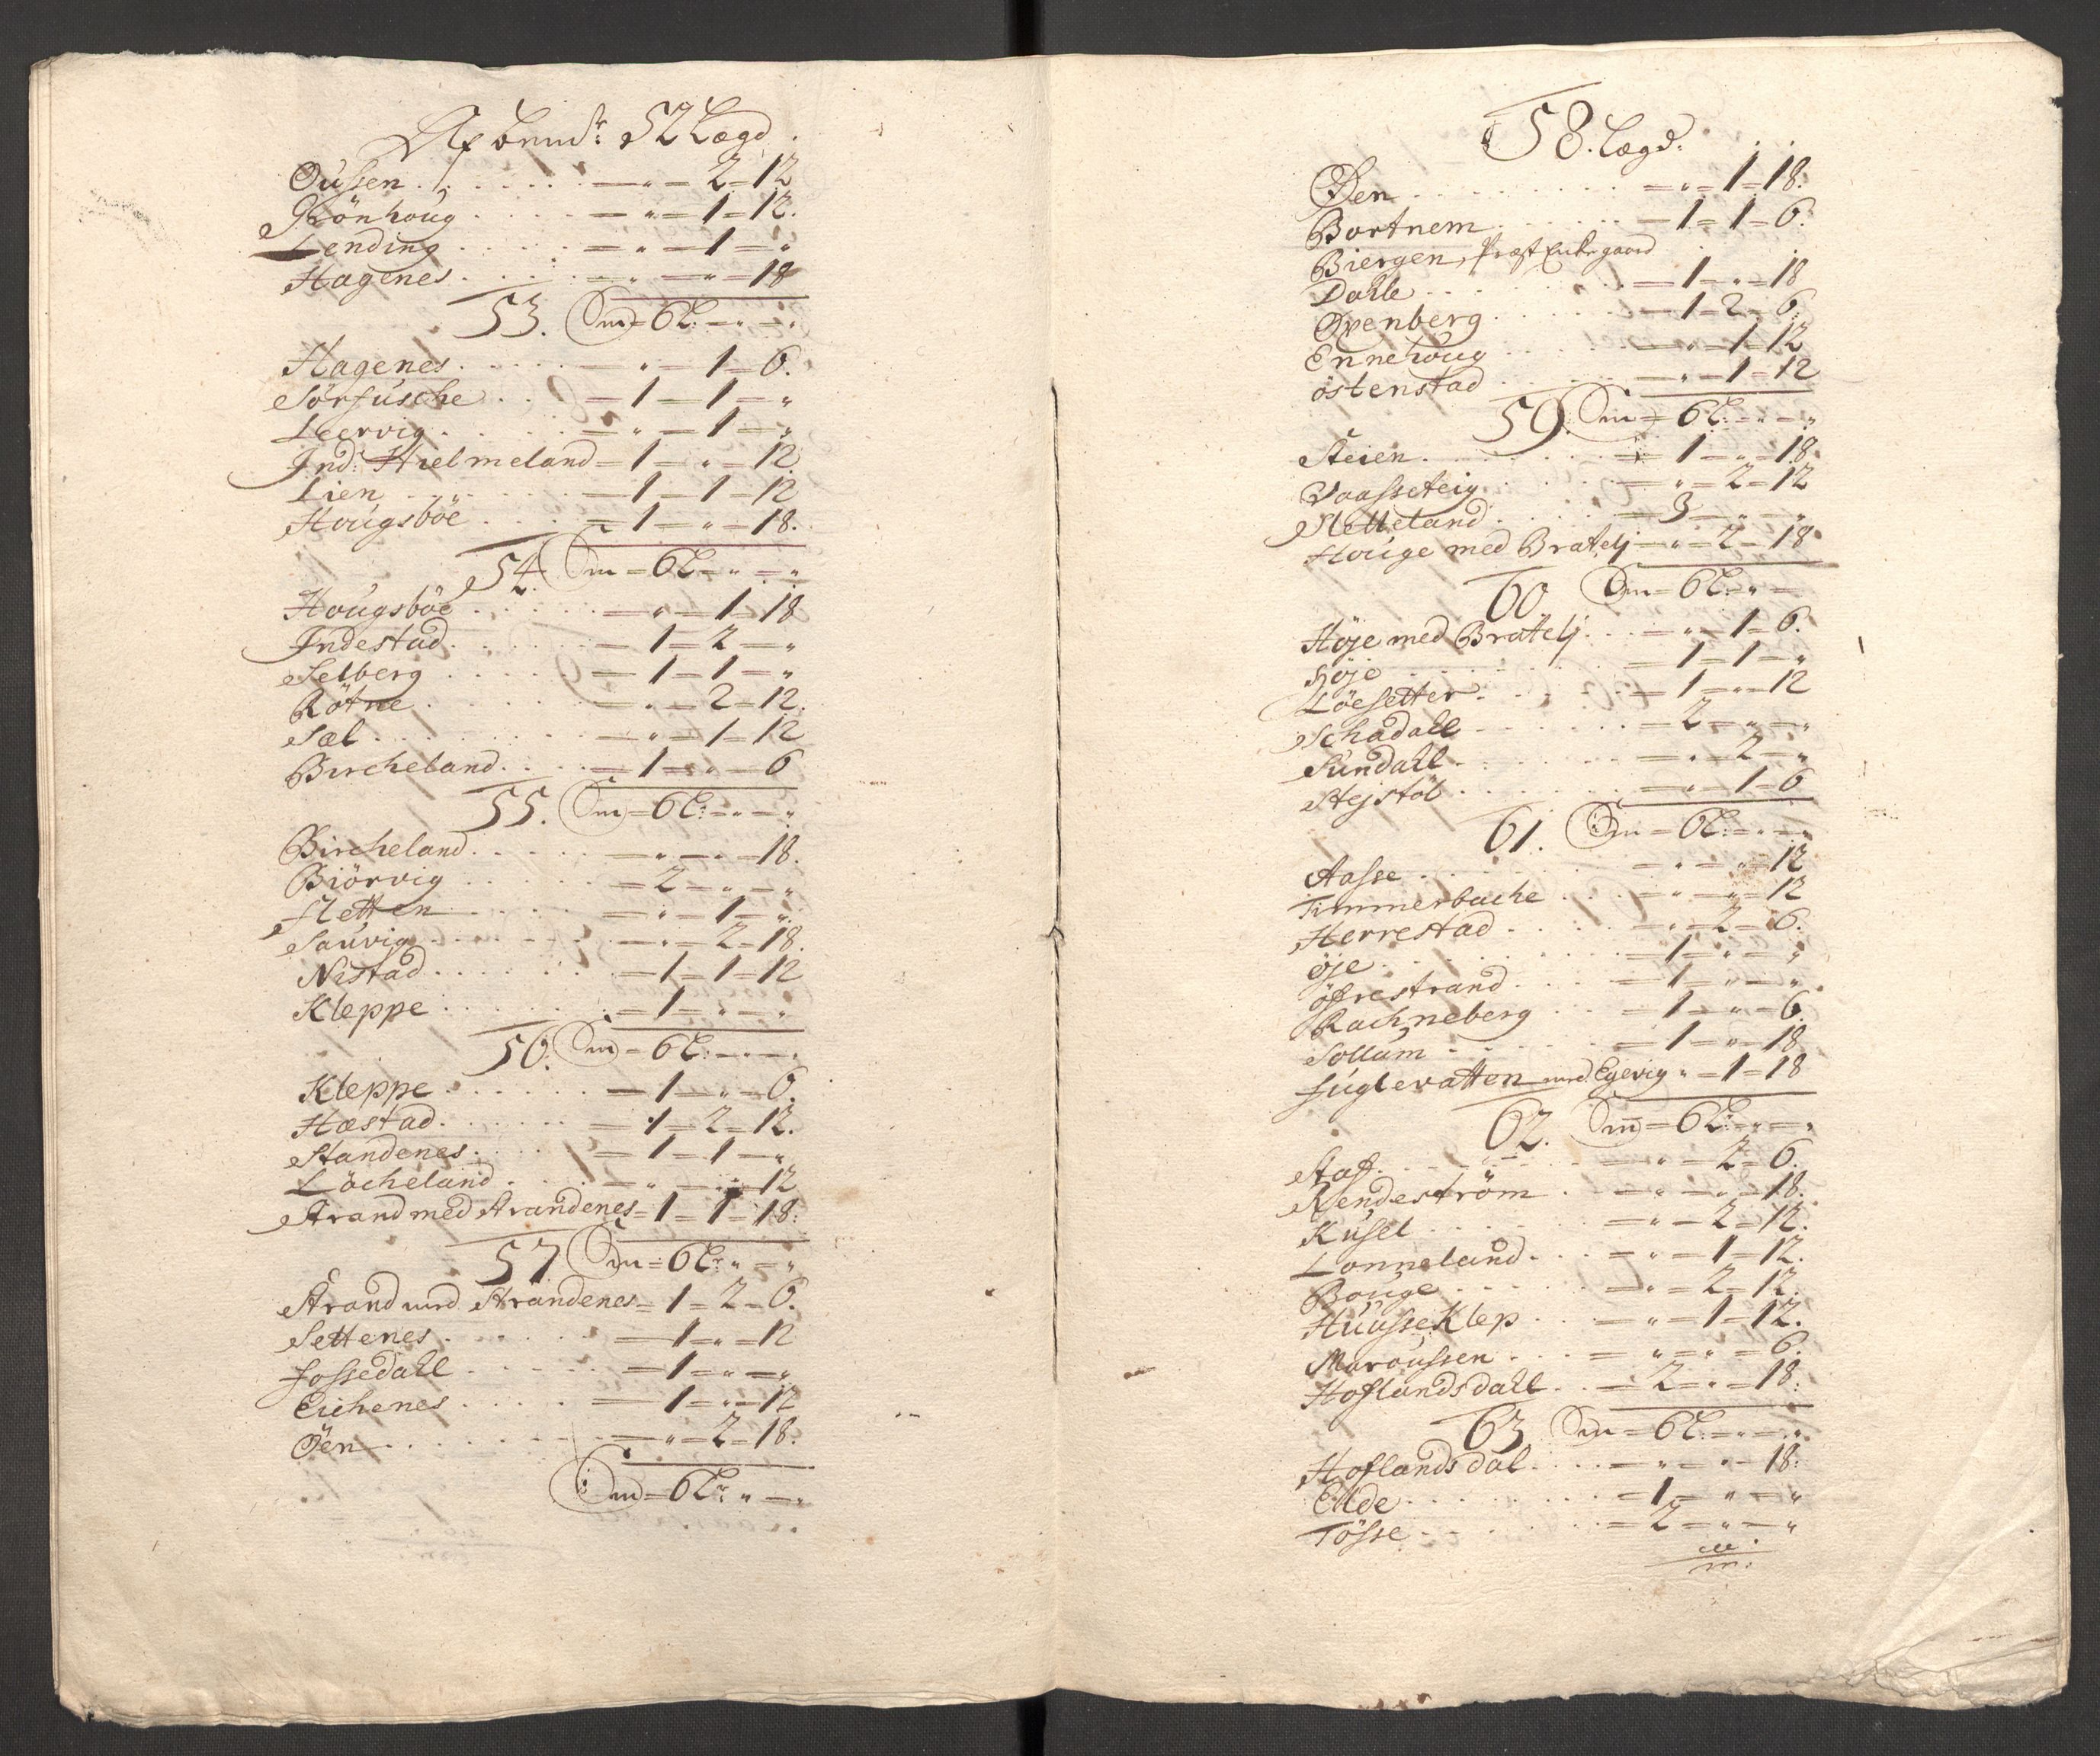 Af bemte: 52 Lægd.
Oussen . . . . . . — " — 2 — 12
Grönhoug . . . . — " — 1 — 12.
Lending . . . . . — " — 1 — "
Hagenes . . . . . — " — " — 18
53. Sm = 6 L: — " — "
Hagenes . . . . . — " — 1 — 6.
Sörfusche . . . — 1 — 1 — "
Leervig . . . . . — " — 1 — "
Ind: Hielmeland = 1 — " — 12.
Lien . . . . . . — 1 — 1 — 12
Hougsböe . . . . — 1 — " — 18.
54. Sm = 6 L — " — "
Hougsböe . . . . — " — 1 — 18
Indestad . . . . . — 1 — 2 — "
Selberg . . . . . — 1 — 1 — "
Rötne . . . . . . — " — 2 — 12.
Sæl . . . . . . . — " — 1 — 12
Bircheland . . . . — 1 — " — 6
55. Sm = 6 L: — " — "
Bircheland . . . . — " — " — 18.
Biörvig . . . . . — 2 — " — "
Sletten . . . . . — " — 1 — "
Sauvig . . . . . — " — 2 — 18.
Nistad . . . . . — 1 — 1 — 12
Kleppe . . . . . — 1 — " — "
56. Sm = 6 L: — " — "
Kleppe . . . . . — 1 — " — 6.
Hæstad . . . . . — 1 — 2 — 12.
Standenes . . . . — 1 — 1 — "
Löcheland . . . . — " — " — 12
Strand med Strandenes = 1 — 1 — 18.
57 Sm = 6 L: " — "
Strand med Strandenes = 1 — 2 — 6.
Settenes . . . . . — 1 — " — 12
Fossedall . . . . — 1 — " — "
Eichenes . . . . — 1 — " — 12
Öen . . . . . . . — " — 2 — 18.
Sm = 6 L: " — "
58. Lægd.
Öen . . . . . . . — " — 1 — 18.
Bortnem . . . . . — 1 — 1 — 6.
Biergen, Præst Enke gaard
Dahle . . . . . . — 1 — " — 18
Openberg . . . . — 1 — 2 — 6.
Ennehoug . . . . — " — 1 — 12
östenstad . . . . — " — 1 — 12
59. Sm = 6 L: — " — "
Steien . . . . . . — 1 — " — 18.
Vaasseteig . . . . — " — 2 — 12
Sletteland . . . . — 3 — " — "
Houge med Bratelj — " — 2 — 18
60 Sm = 6 L: " —
Höje med Bratelj . . . — " — 1 — 6.
Höje . . . . . . — 1 — 1 — "
Löesetter . . . . — 1 — " — 12
Schadall . . . . . — 2 — " — "
Sundall . . . . . — " — 2 — "
Stejstöl . . . . . — " — 1 — 6
61. Sm = 6 L: — " — "
Aasse . . . . . . — " — " — 12
Timmerbache . . . — " — " — 12
Herrestad . . . . — " — 2 — 6.
öje . . . . . . . — 1 — " — "
öfrestrand . . . . — 1 — " — "
Rachneberg . . . — 1 — " — 6.
Sollum . . . . . — 1 — " — 18
Fuglevatten med Egevig " — 1 — 18
62. Sm = 6 L: — " — "
Staf . . . . . . — " — 2 — 6.
Rendeström . . . — " — " — 18.
Kusel . . . . . . — " — 2 — 12.
Lonneland . . . . — " — 1 — 12.
Bouge . . . . . . — " — 2 — 12.
Huusse Klep . . . — " — 1 — 12.
Maroussen . . . . — " — " — 6.
Hoflandsdall . . . — 2 — " — 18.
63 Sm = 6 L: — " — "
Hoflandsdal . . . . — " — " — 18.
Elde . . . . . . — 1 — " — "
Tösse . . . . . . — 2 — " — "